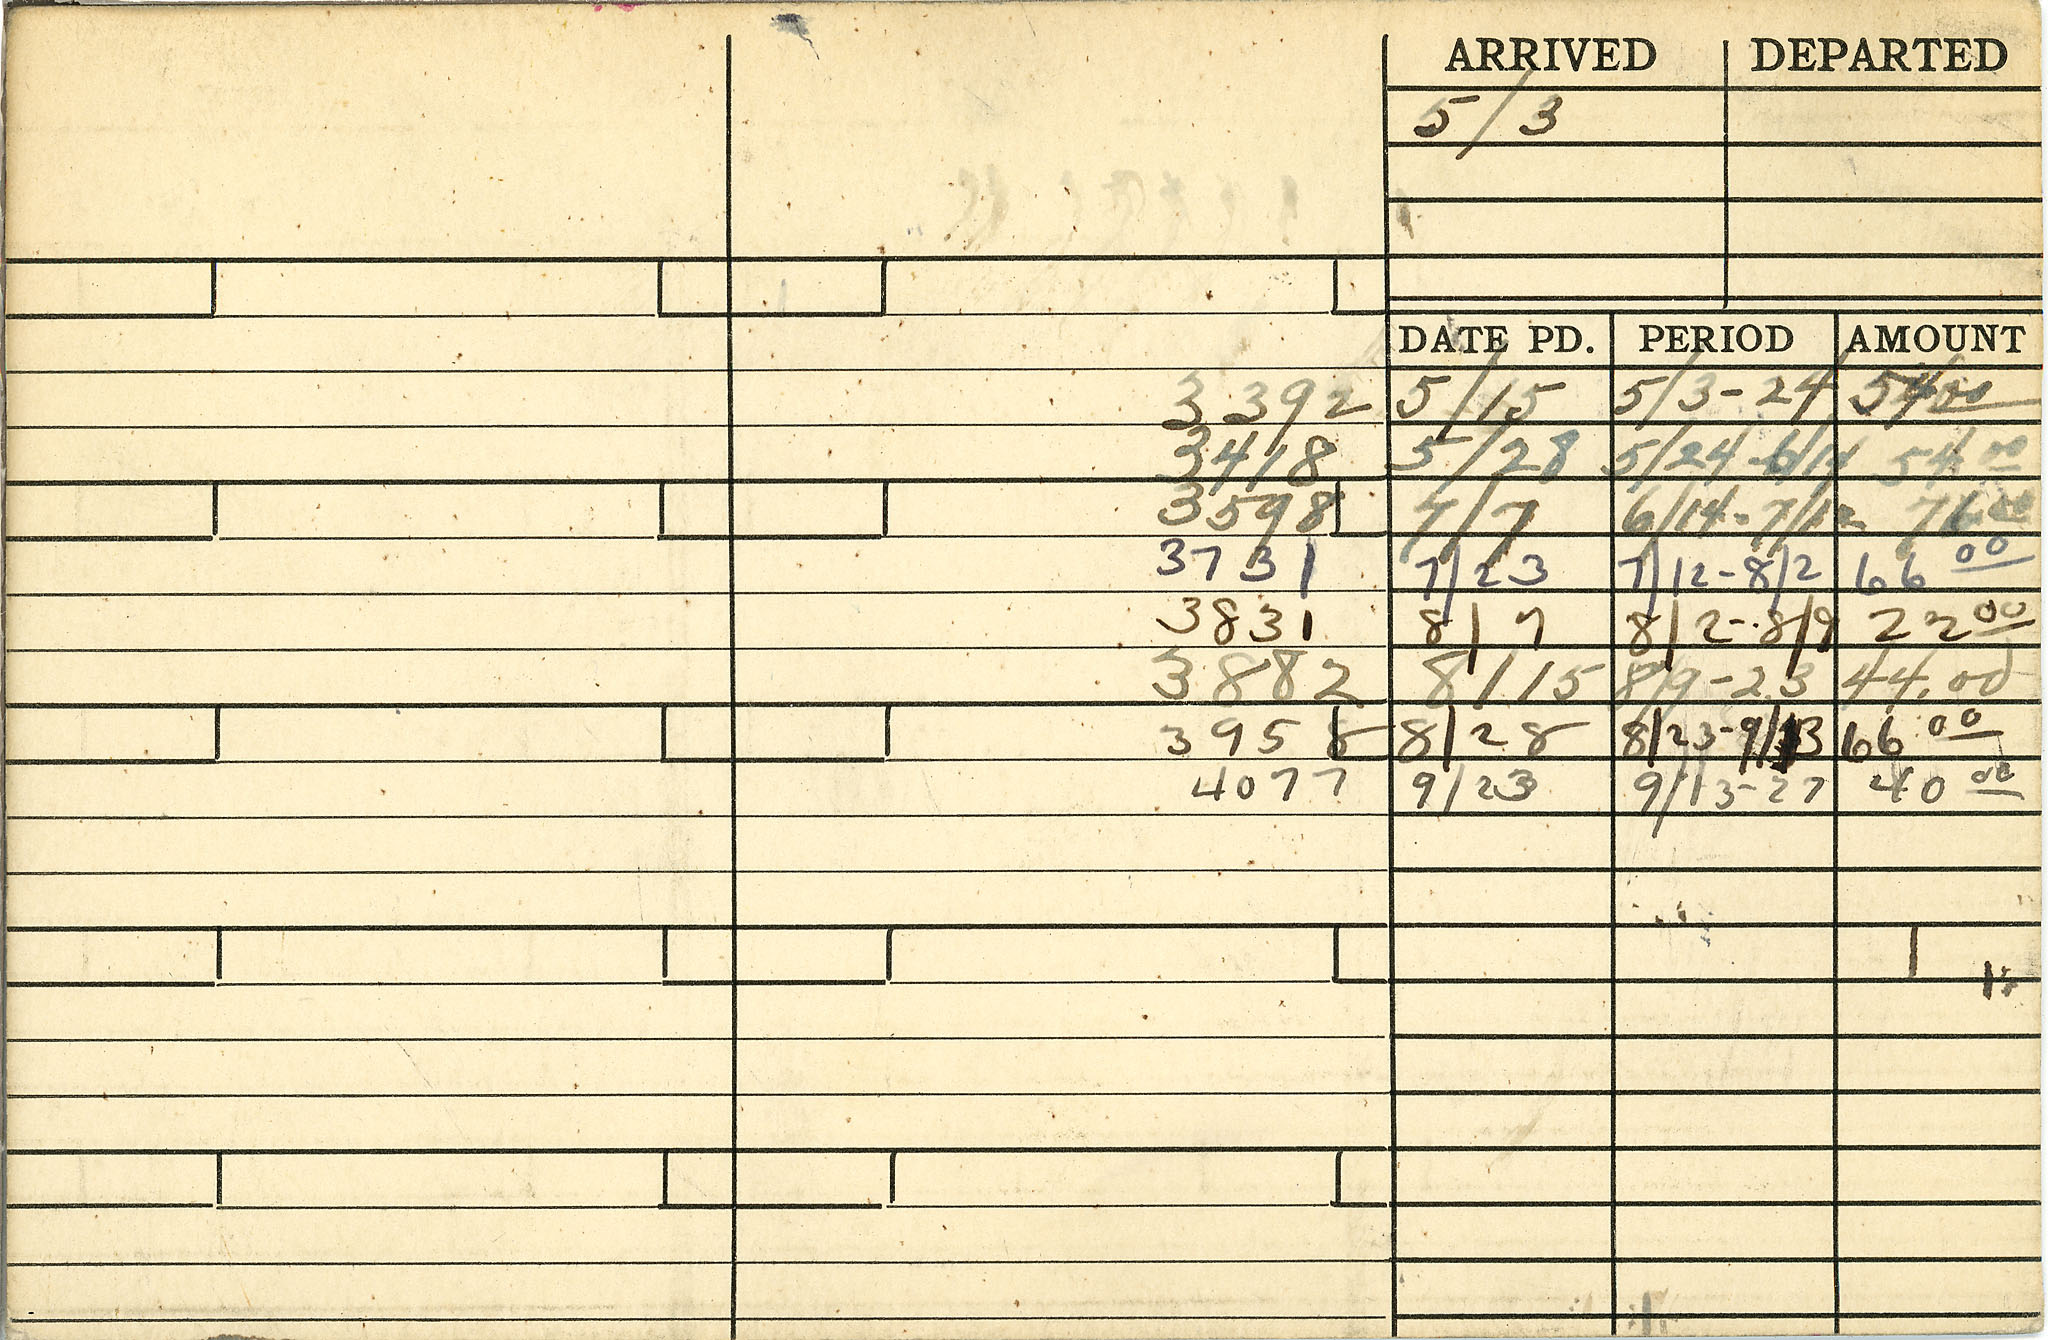 ARRIVED DEPARTED
5/3
DATE PD. PERIOD AMOUNT
3392 5/15 5/3-24 54 00
3418 5/28 5/24-6/14 54 00
3598 7/7 6/14-7/12 76 00
3731 7/23 7/12-8/2 66 00
3831 8/7 8/2-8/9 22 00
3882 8/15 8/9-23 44.00
3958 8/28 8/23-9/13 66 00
4077 9/23 9/13-27 40 00